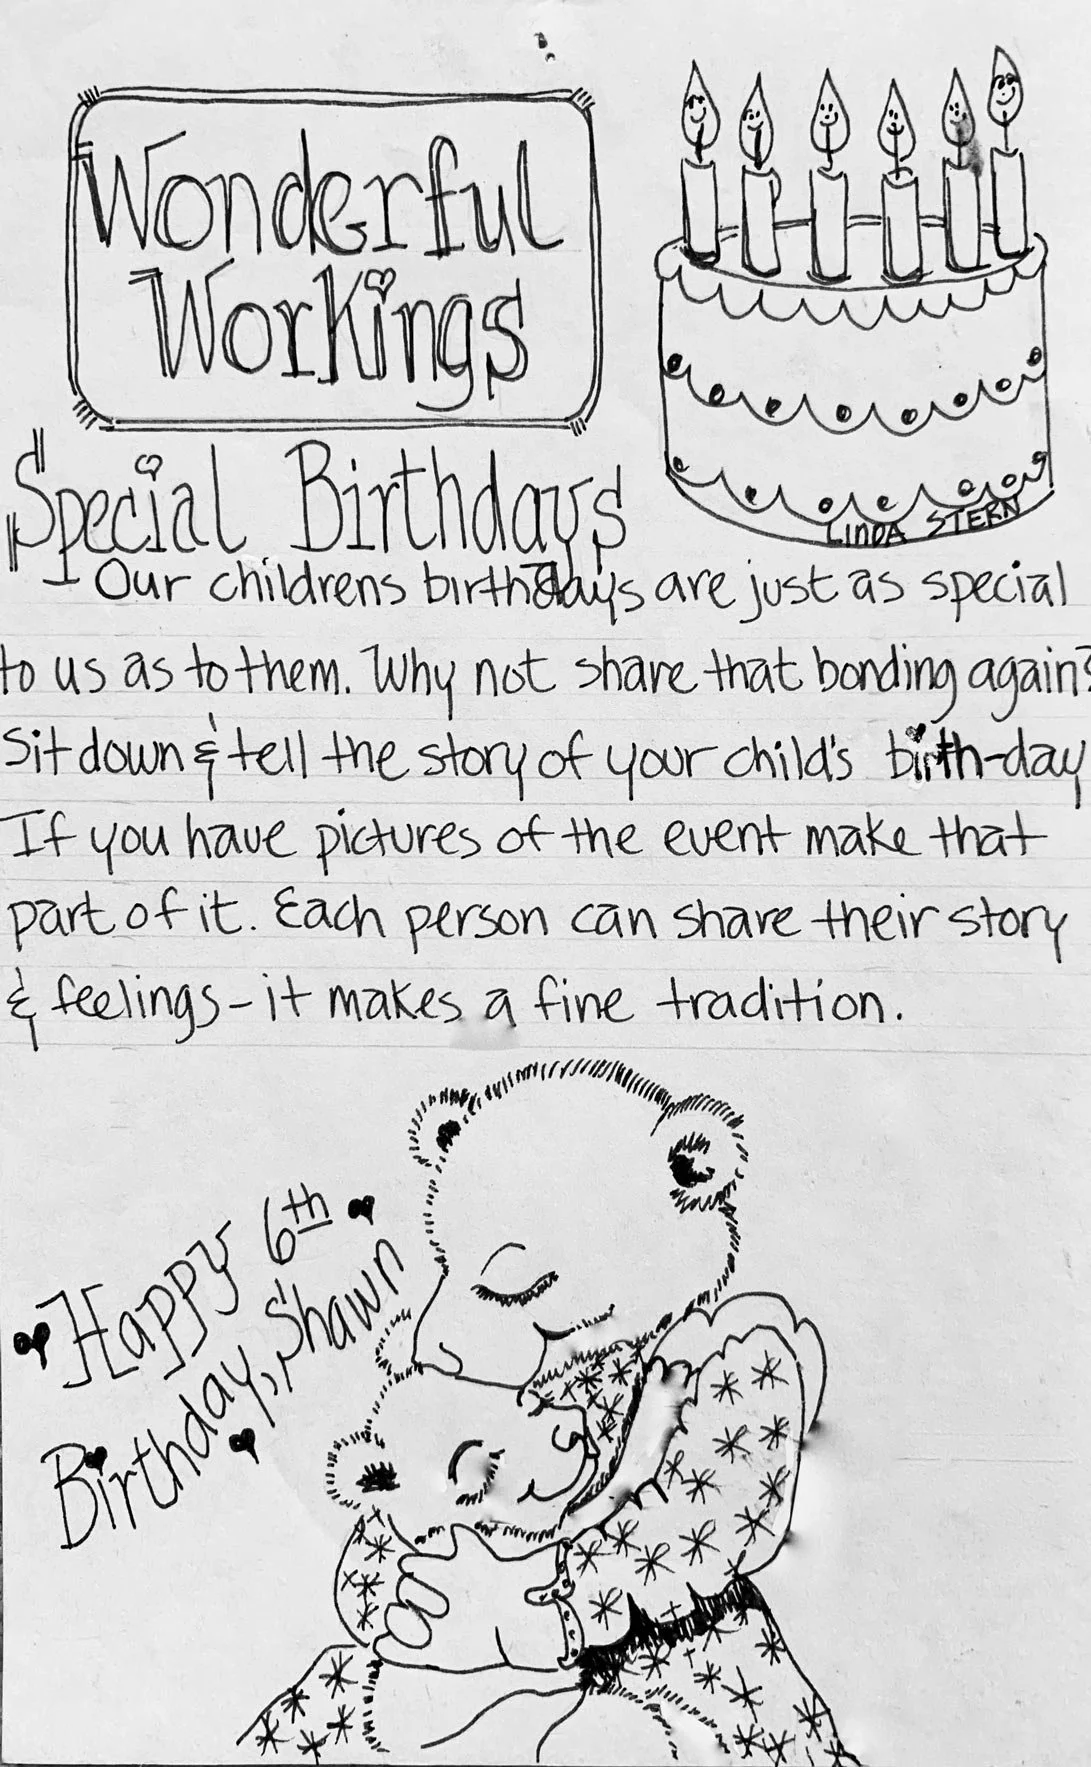 Wonderful
Workings
Special Birthdays
LINDA STERN
Our childrens birthdays are just as special
to us as to them. Why not share that bonding again?
Sit down & tell the story of your child's birth-day
If you have pictures of the event make that
part of it. Each person can share their story
& feelings - it makes a fine tradition.
Happy 6th
Birthday, Shawn